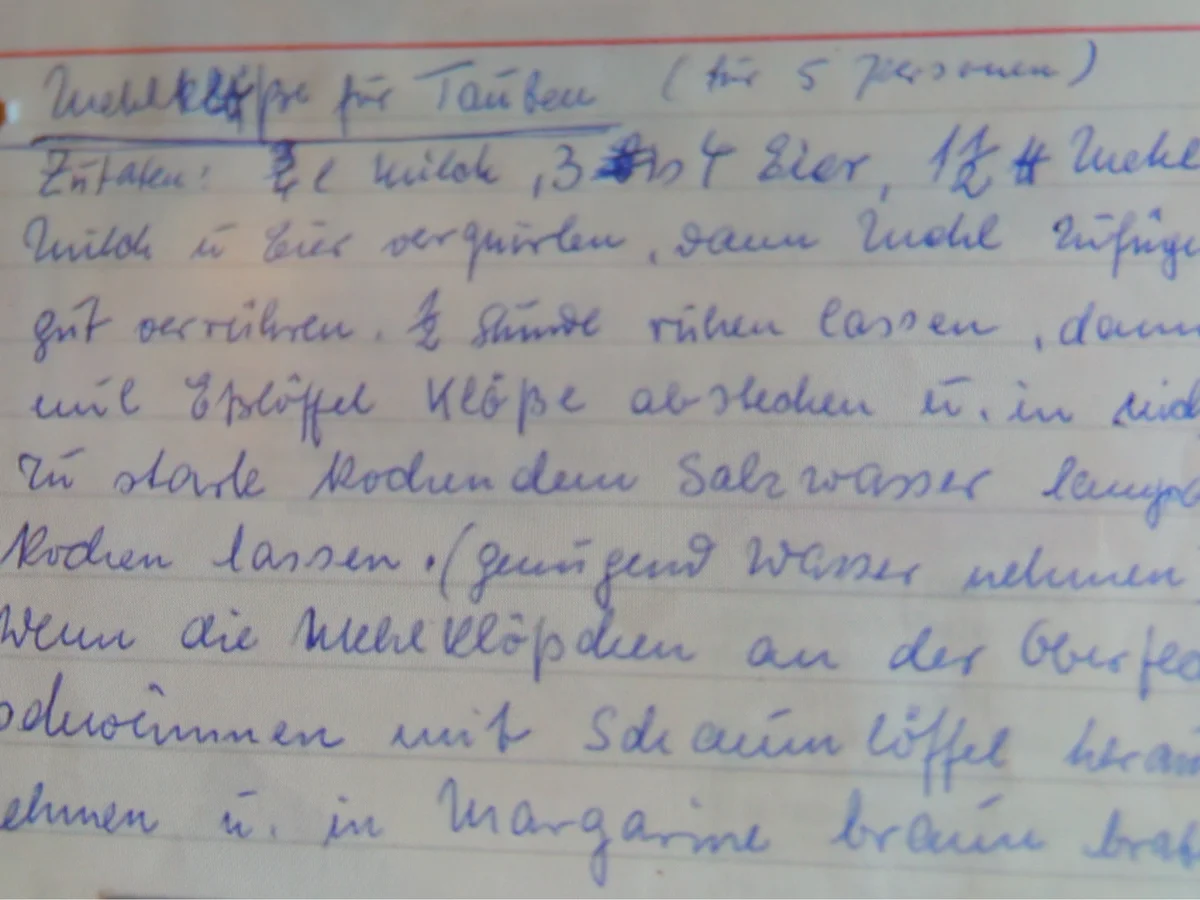 Mehlklöße für Tauben (für 5 Personen)
Zutaten: ¾ l Milch, 3 bis 4 Eier, 1½ ℔ Mehl
Milch u Eier verquirlen, dann Mehl zufüge
gut verrühren. ½ Stunde ruhen lassen, dann
mit Eßlöffel Klöße abstechen u. in nich
zu stark kochendem Salzwasser langs
kochen lassen. (genügend Wasser nehmen
Wenn die Mehlklößchen an der Oberflä
schwimmen mit Schaumlöffel herau
ehmen u. in Margarine braun brat